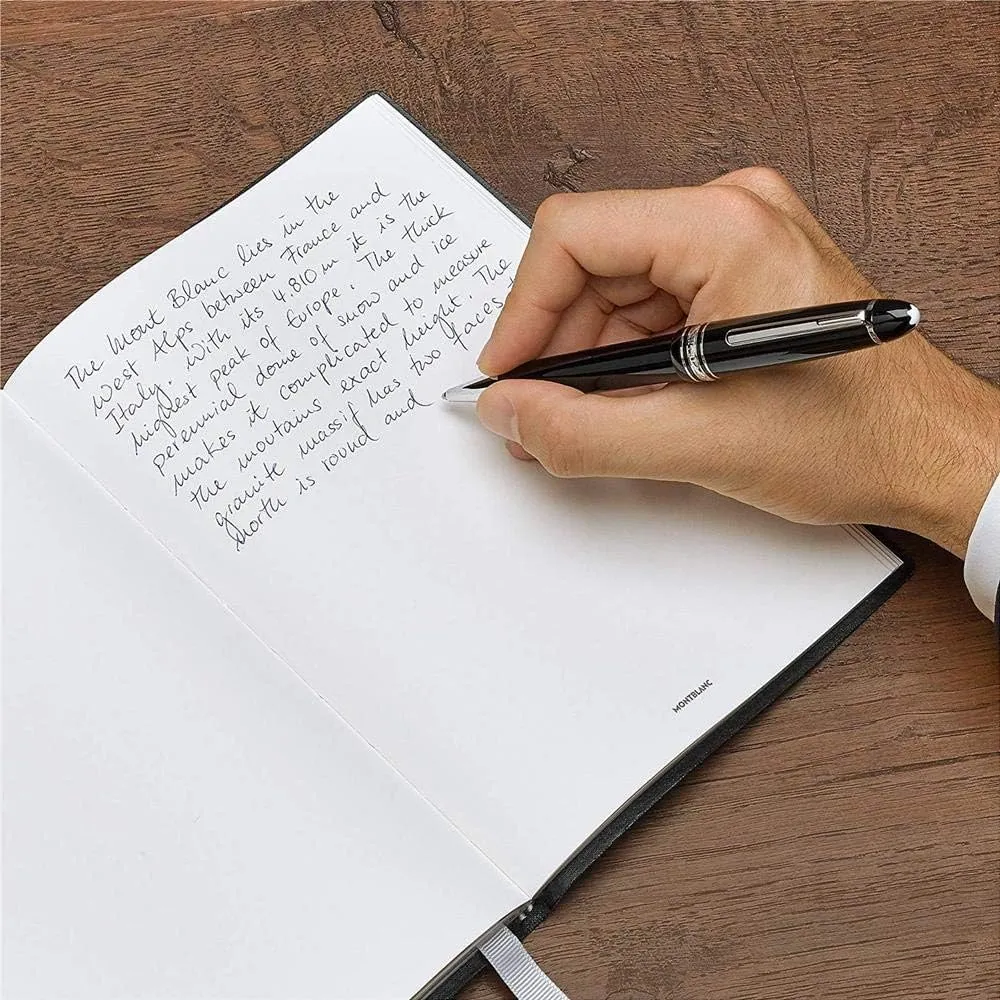 The Mont Blanc lies in the
West Alps between France and
Italy. With its 4.810 m it is the
highest peak of Europe. The thick
perennial dome of snow and ice
makes it complicated to measure
the moutains exact height. The
granite massif has two faces
north is round and
MONTBLANC